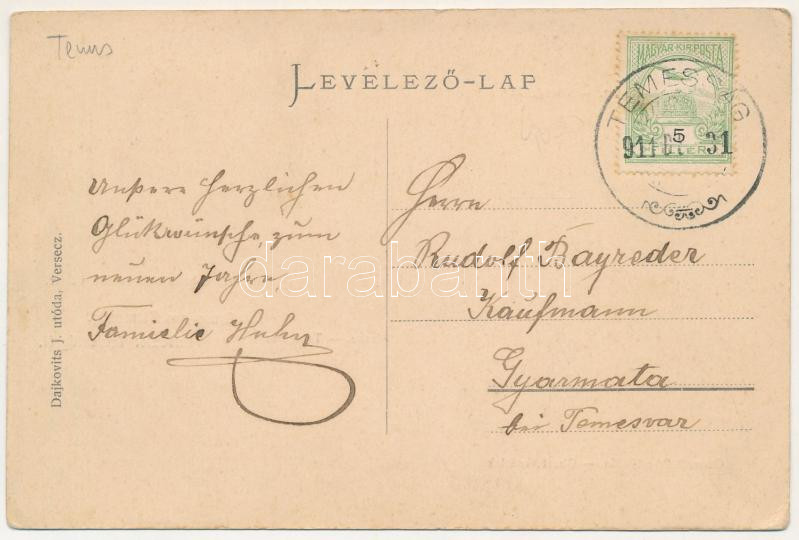 Temes
LEVELEZŐ-LAP
MAGYAR KIR. POSTA
5
FILLÉR
TEMESSÁG
911 31
Unsere herzlichen
Glükwünsche, zum
neuen Jahre,
Familie Huhn
Herrn
Rudolf Bayreder
Kaufmann
Gyarmata
bei Temesvar
Dajkovits J. utóda, Versecz.
darabanth